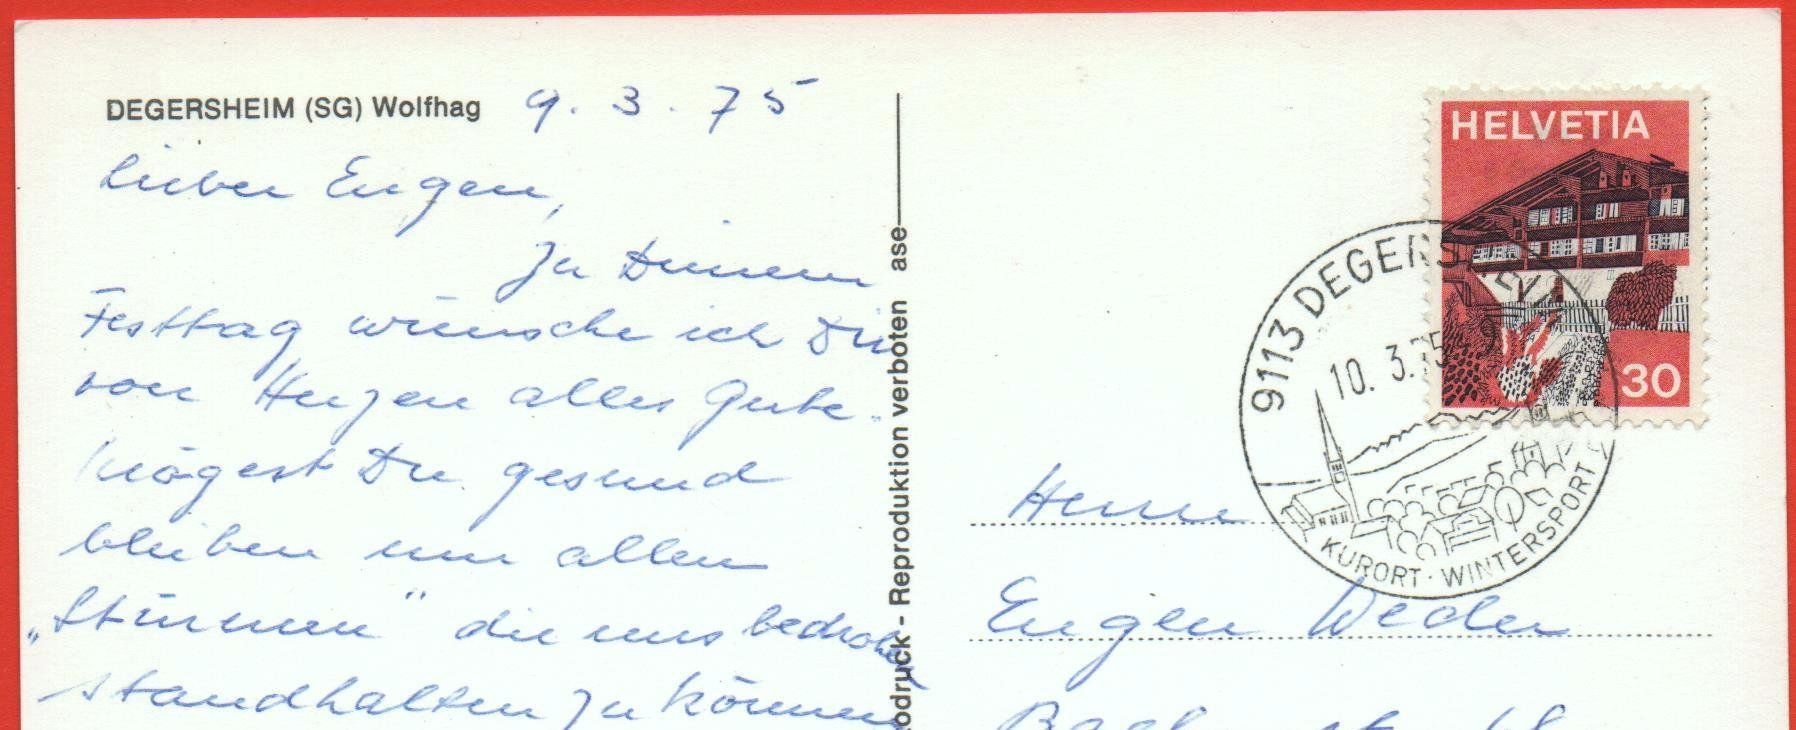 DEGERSHEIM (SG) Wolfhag 9. 3. 75
Lieber Eugen,
Zu Deinem
Festtag wünsche ich Dir
von Herzen alles Gute.
Mögest Du gesund
bleiben um allen
„Stürmen" die uns bedrohen
standhalten zu können
odruck - Reproduktion verboten ase
HELVETIA
30
9113 DEGERSHEIM
10. 3. 75
KURORT · WINTERSPORT
Herrn
Eugen